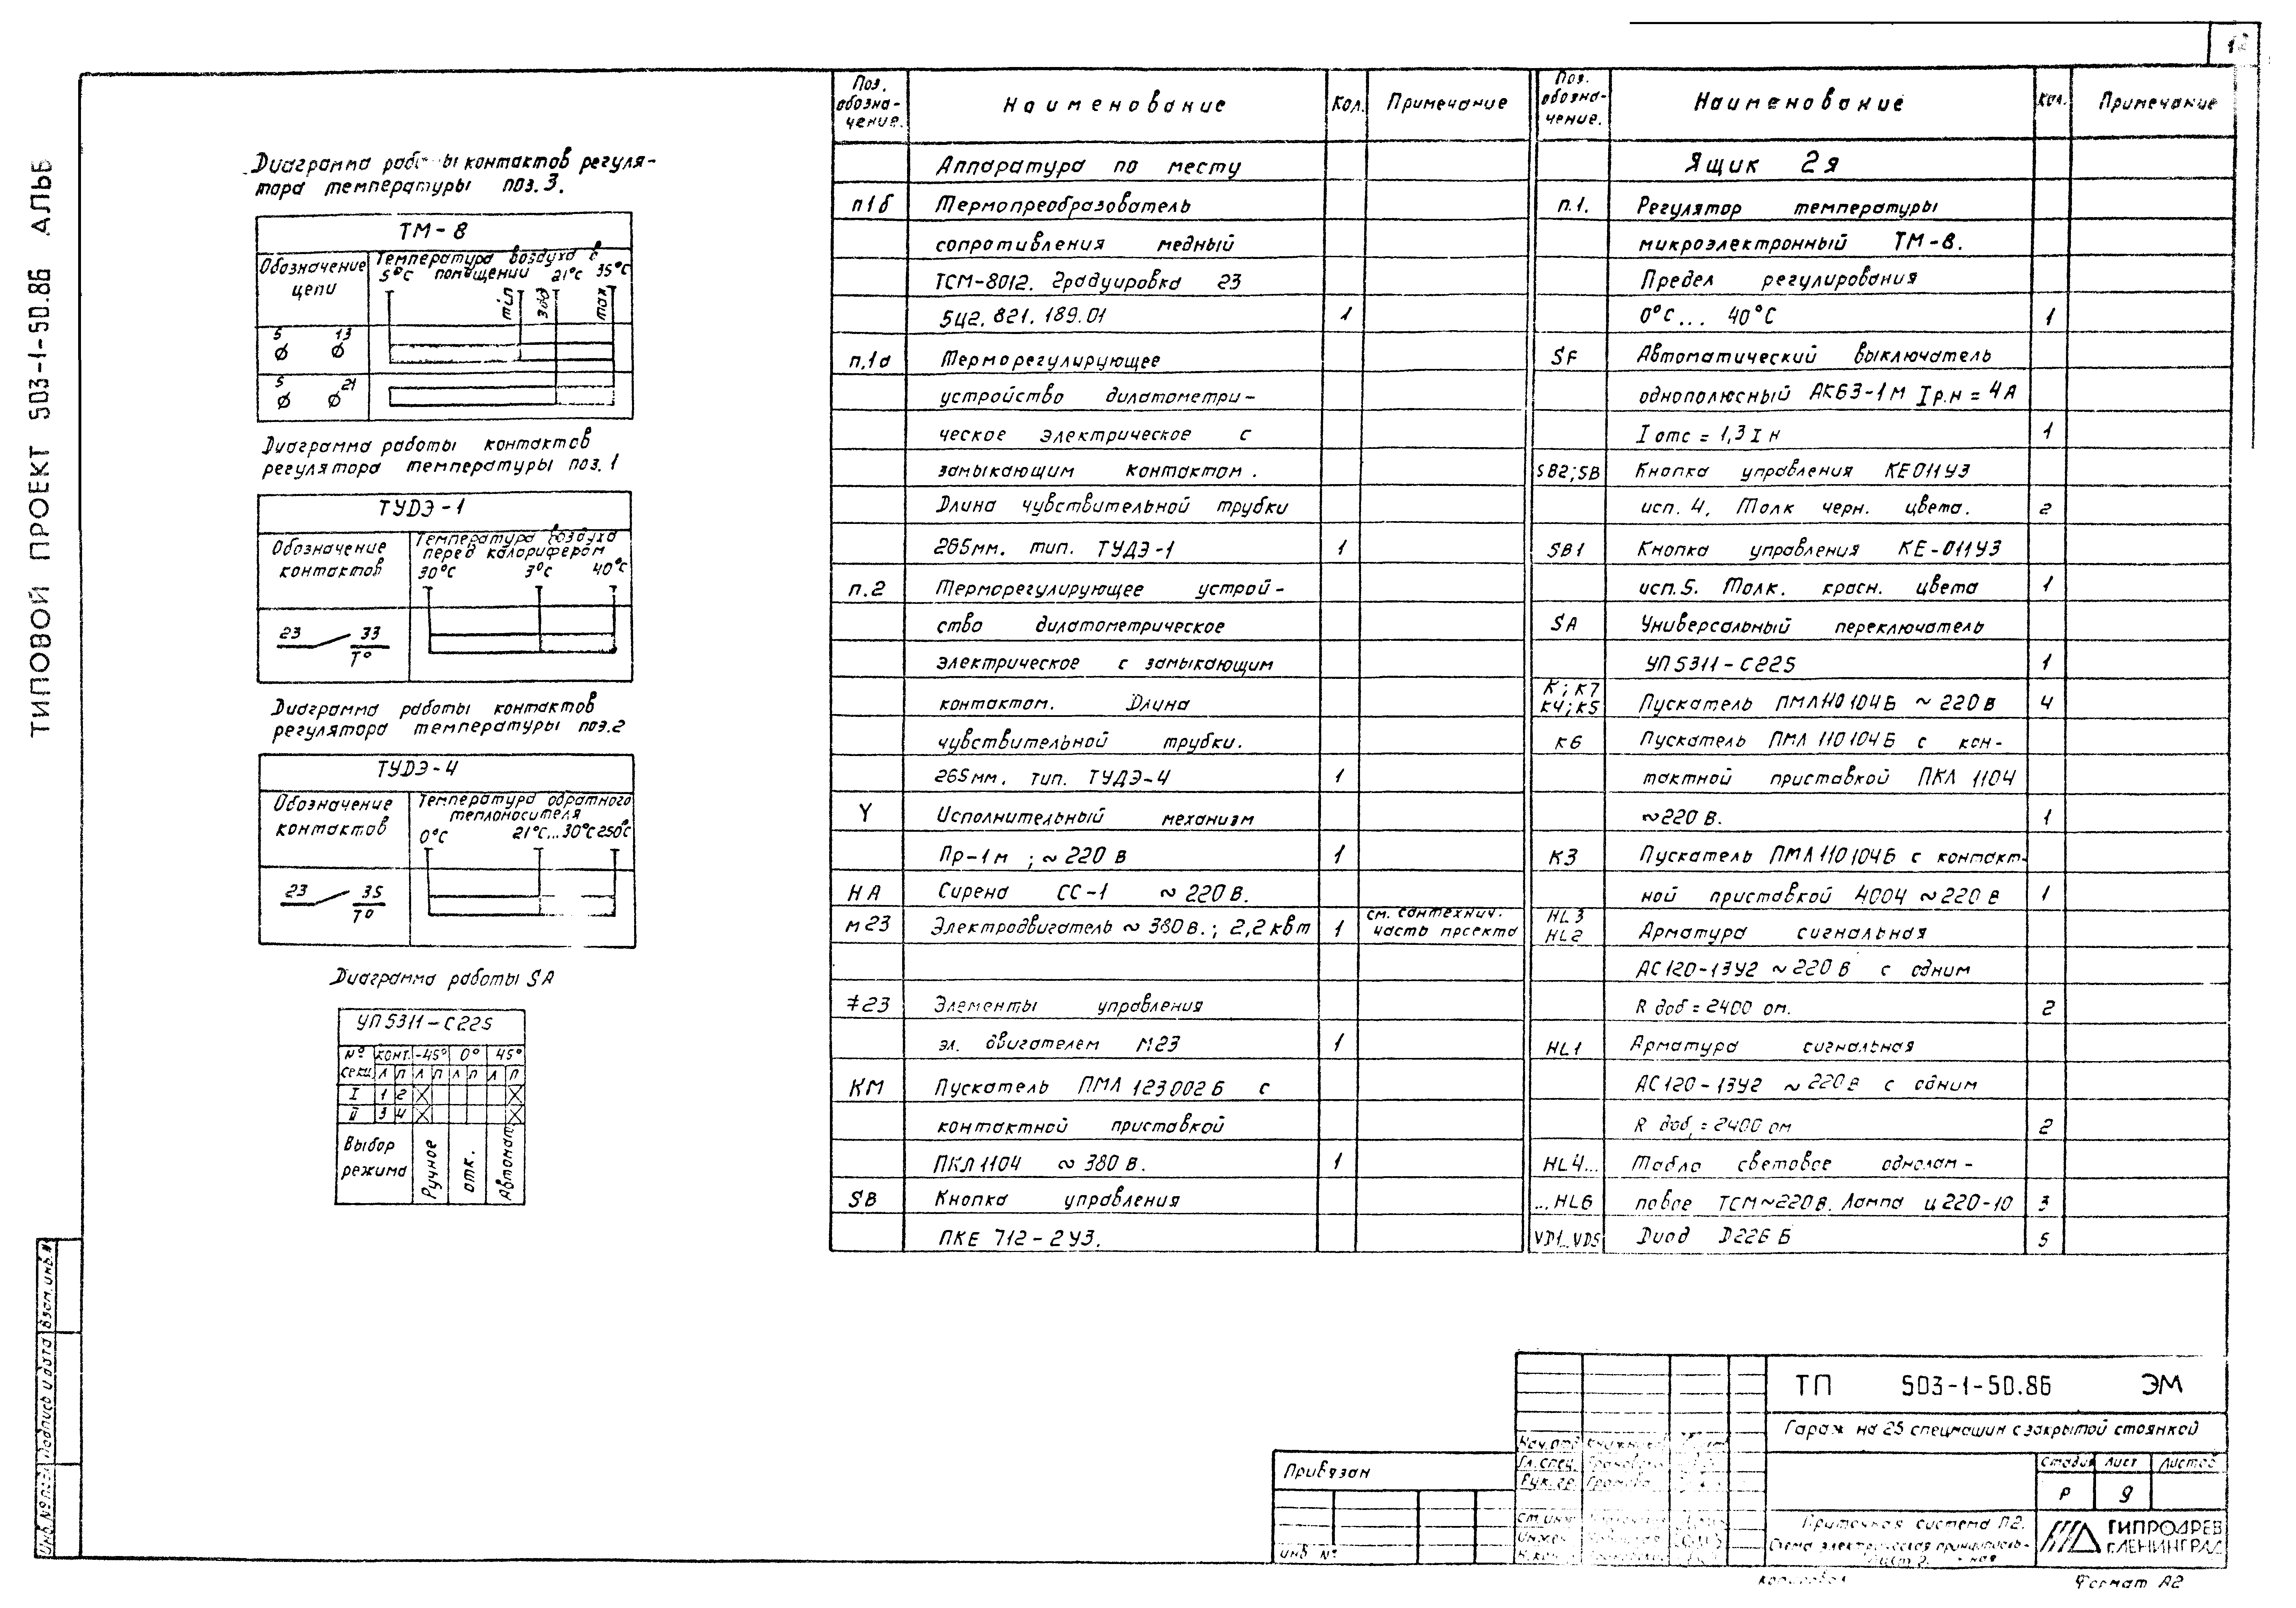 12
ТИПОВОЙ ПРОЕКТ 503-1-50.86 АЛЬБ
Диаграмма работы контактов регуля-
тора температуры поз. 3.
ТМ-8
Обозначение
цепи
Температура воздуха в
помещении
5°С 21°С 35°С
min зад max
5 13
5 21
Диаграмма работы контактов
регулятора температуры поз. 1
ТУДЭ-1
Обозначение
контактов
Температура воздуха
перед калорифером
30°С 3°С 40°С
23 33
Т°
Диаграмма работы контактов
регулятора температуры поз.2
ТУДЭ-4
Обозначение
контактов
Температура обратного
теплоносителя
0°С 21°С...30°С 250°С
23 35
Т°
Диаграмма работы SA
УП 5311-С225
№ конт. -45° 0° 45°
секц. Л П Л П Л П Л П
I 1 2 X X
II 3 4 X X
Выбор
режима
Ручное
отк.
Автомат
Поз. обозна- чение. Наименование Кол. Примечание
Аппаратура по месту
п1б Термопреобразователь
сопротивления медный
ТСМ-8012. Градуировка 23
5Ц2. 821. 189.01 1
п.1а Терморегулирующее
устройство дилатометри-
ческое электрическое с
замыкающим контактом.
Длина чувствительной трубки
265мм. тип. ТУДЭ-1 1
п.2 Терморегулирующее устрой-
ство дилатометрическое
электрическое с замыкающим
контактом. Длина
чувствительной трубки.
265мм. тип. ТУДЭ-4 1
Y Исполнительный механизм
Пр-1м ; ~220 В 1
НА Сирена СС-1 ~ 220 В.
М23 Электродвигатель ~ 380 В.; 2,2 кВт 1 см. сантехнич. часть проекта
≠23 Элементы управления
эл. двигателем М23 1
КМ Пускатель ПМЛ 123002 Б с
контактной приставкой
ПКЛ 1104 ~ 380 В. 1
SB Кнопка управления
ПКЕ 712-2У3.
Поз. обозна- чение. Наименование Кол. Примечание
Ящик 2я
п.1. Регулятор температуры
микроэлектронный ТМ-8.
Предел регулирования
0°С... 40°С 1
SF Автоматический выключатель
однополюсный АК63-1М Iр.н = 4А
I отс = 1,3 I н 1
SB2;SB Кнопка управления КЕ011У3
исп. 4. Толк черн. цвета. 2
SB1 Кнопка управления КЕ-011У3
исп. 5. Толк. красн. цвета 1
SA Универсальный переключатель
УП 5311-С225 1
К; К7
К4; К5 Пускатель ПМЛ110104Б ~ 220 В 4
К6 Пускатель ПМЛ 110104Б с кон-
тактной приставкой ПКЛ 1104
~220 В. 1
К3 Пускатель ПМЛ110104Б с контакт-
ной приставкой 4004 ~220 В 1
HL3
HL2 Арматура сигнальная
АС120-13У2 ~220 В с одним
R доб = 2400 ом. 2
HL1 Арматура сигнальная
АС120-13У2 ~220 В с одним
R доб. = 2400 ом 2
HL4... Табло световое однолам-
...HL6 повое ТСМ~220В. Лампа Ц220-10 3
VD1...VD5 Диод D226 Б 5
Взам. инв. №
Подпись и дата
Инв. № подл.
Привязан
Инв №
ТП 503-1-50.86 ЭМ
Гараж на 25 спецмашин с закрытой стоянкой
Нач. отд.
Гл. спец.
Рук. гр. Громова
Ст. инж
Инжен.
Н. кон.
Стадия Лист Листов
Р 9
Приточная система П2.
Схема электрическая принципиаль-
Лист 2. ная
ГИПРОДРЕВ
г. ЛЕНИНГРАД
Копировал
Формат А2